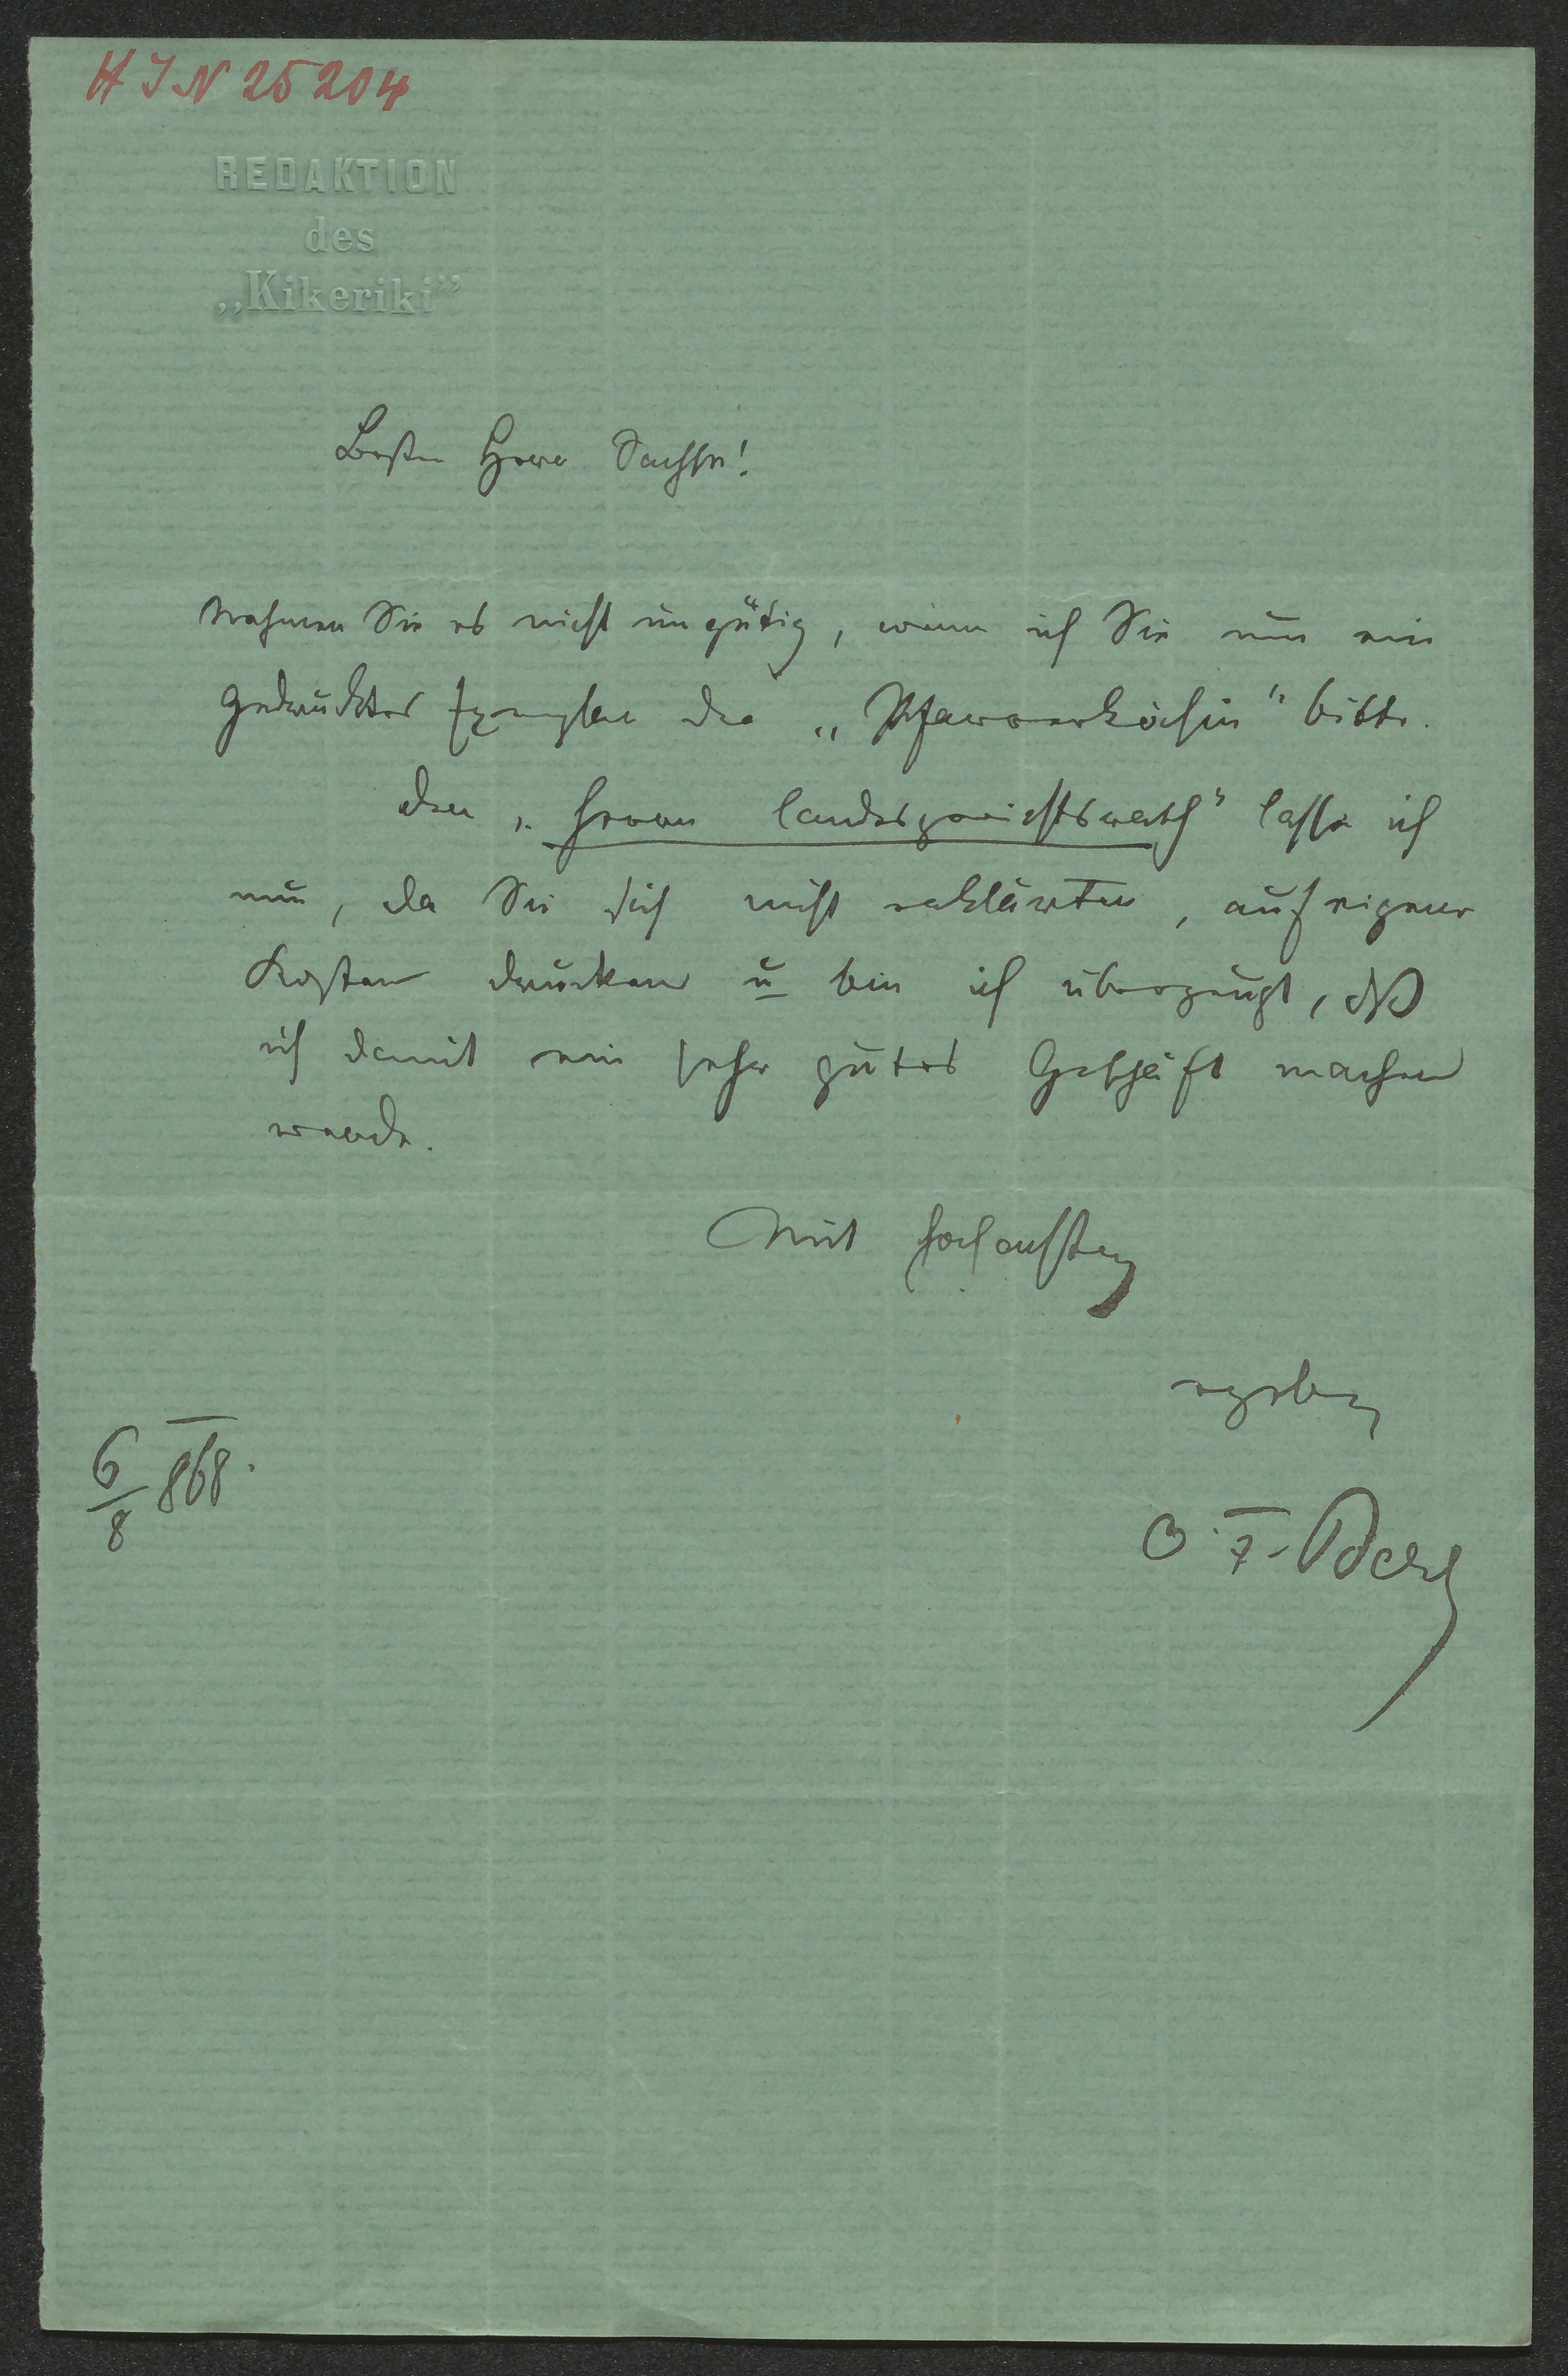 HIN 25204
REDAKTION
des
„Kikeriki”
Bester Herr Sachse!
Nehmen Sie es nicht ungütig, wenn ich Sie um ein
gedrucktes Exemplar der „Pfarrerköchin“ bitte.
Den „Herrn Landesgerichtsrath“ lasse ich
nun, da Sie sich nicht erklärten, auf eigene
Kosten drucken u bin ich überzeugt, dß
ich damit ein sehr gutes Geschäft machen
werde.
Mit Hochachtung
ergeben
6/8 868.
O. F. Berg